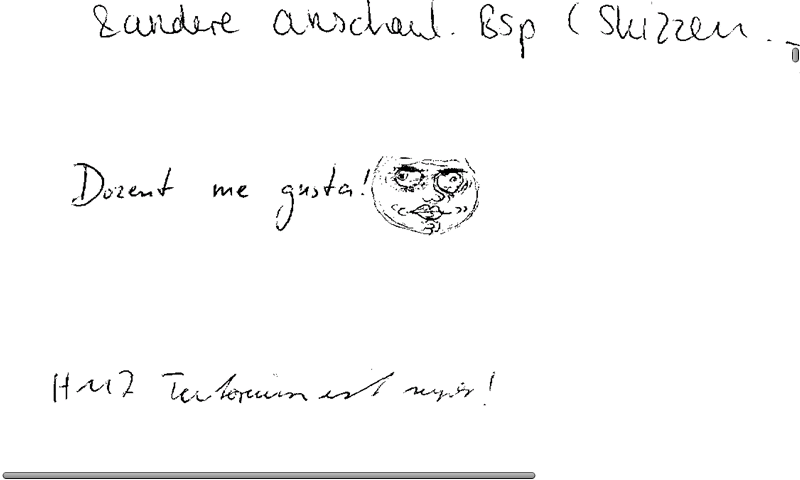 & andere anschaul. Bsp (Skizzen.
Dozent me gusta!
HM2 Tutorium ist super!